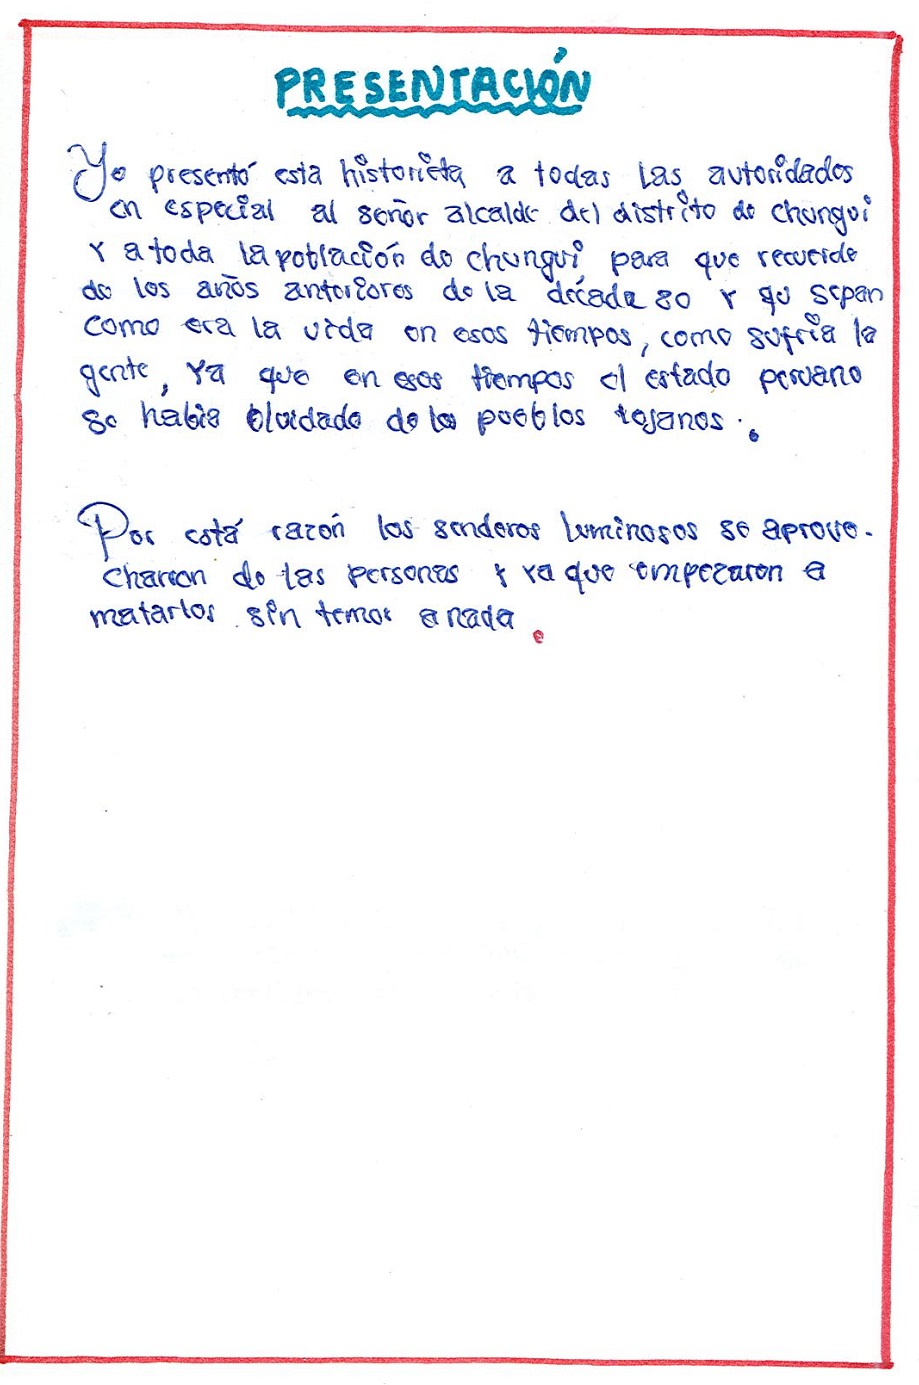 PRESENTACIÓN
Yo presentó esta historieta a todas las autoridades
en especial al señor alcalde del distrito de chungui
Y a toda la población de chungui para que recuerde
de los años anteriores de la década 80 Y qu sepan
como era la vida en esos tiempos, como sufría la
gente, Ya que en esos tiempos el estado peruano
se habia olvidado de los pueblos lejanos.
Por está razón los senderos luminosos se aprove-
charon de las personas y ya que empezaron a
matarlos sin temor a nada.